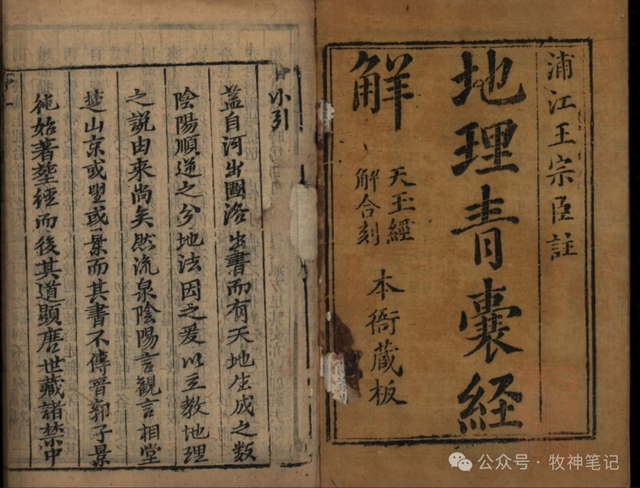 浦江王宗臣註
地理青囊経
觧
天玉經
解合刻
本衙蔵板
小引
蓋自河出圖洛出書而有天地生成之数
陰陽順逆之分地法因之爰以立教地理
之說由來尚矣然流泉陰陽言觀言相堂
楚山京或望或景而其書不傳晉郭子景
純始著塟經而後其道顯唐世藏諸禁中
公众号·牧神笔记